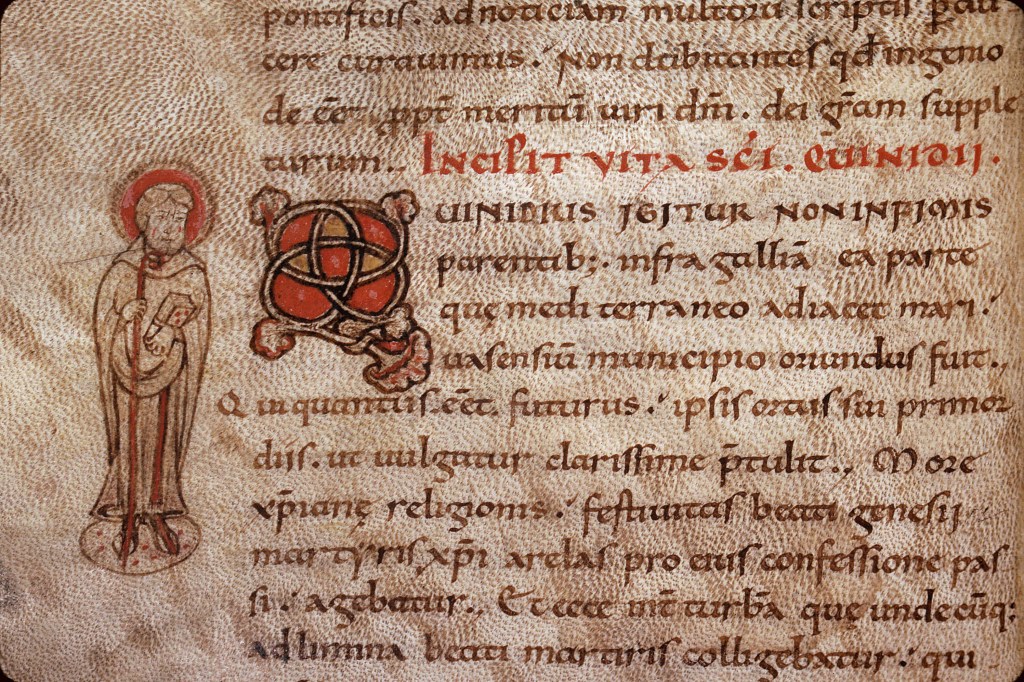 pontificis. ad noticiam multorū scriptis p̄du
cere curavimus. Non dubitantes qđ ingenio
de ēē ꝓpt̄ meritū viri dm̄. dei gr̄am supple
turum.,
INCIPIT VITA SC̄I. QUINIDII.
QUINIDIUS IGITUR NON INFIMIS
parentib;. infra galliā ea parte
quę mediterraneo adiacet mari.
vasensiū municipio oriundus fuit.,
Qui quantus. ēēt. futurus. ipsis ortus sui primor
diis. ut vulgatur clarissime p̄tulit., More
xp̄ianę religionis. festivitas beati genesii
martyris xp̄i arelas pro eius confessione pas
si. agebatur., Et ecce mł̄ turba quę undecūq:
ad limina beati martiris colligebatur. qui